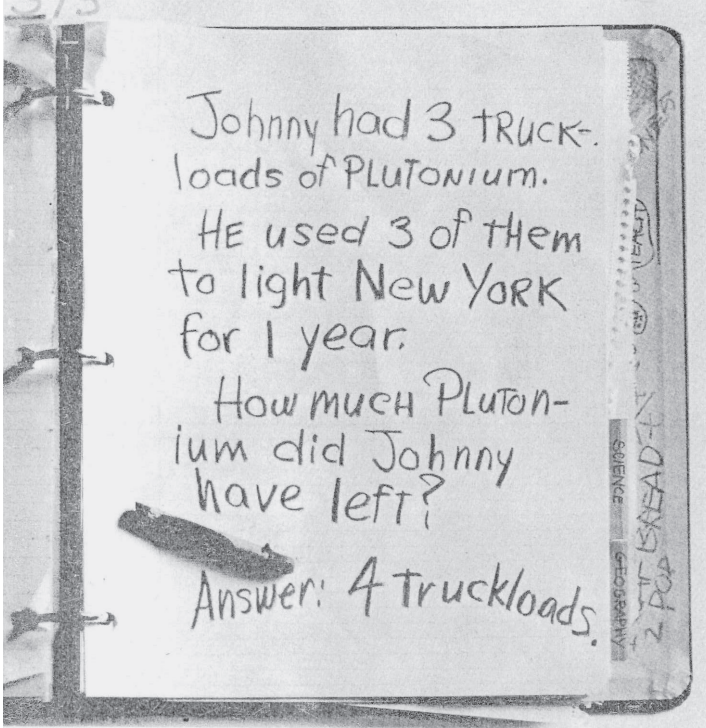 Johnny had 3 TRUCK-
loads of PLUTONIUM.
HE used 3 of tHem
to light New YORK
for 1 year.
How mucH Pluton-
ium did Johnny
have left?
Answer: 4 Truckloads.
SCIENCE
GEOGRAPHY
2 POP